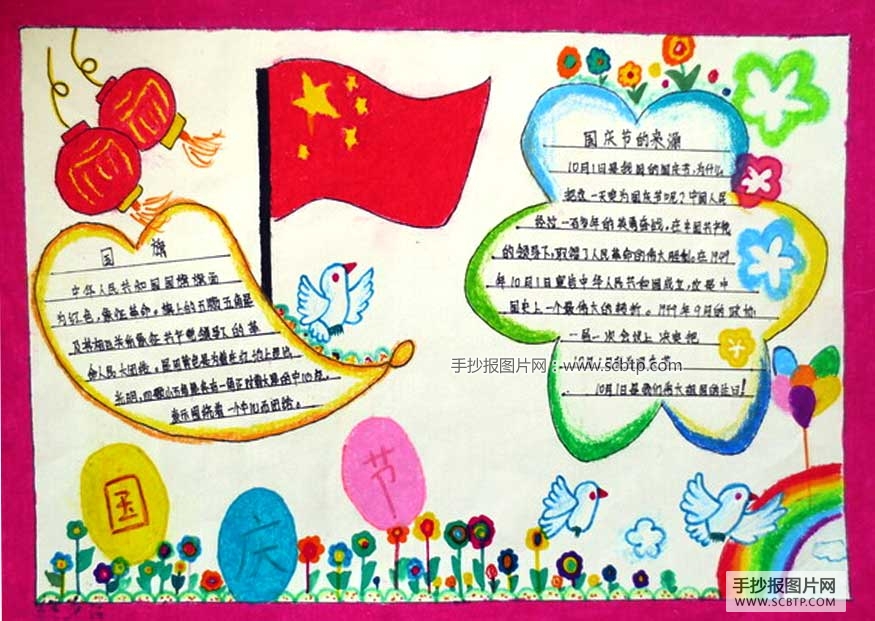 国 旗
中华人民共和国国旗旗面
为红色,象征革命。旗上的五颗五角星
及其相互关系象征共产党领导人的革
命人民大团结。星用黄色是为着在红地上显出
光明,四颗小五角星各有一角正对着大星的中心点,
表示围绕着一个中心而团结。
国庆节的来源
10月1日是我国的国庆节,为什么
把这一天定为国庆节呢?中国人民
经过一百多年的英勇奋战,在中国共产党
的领导下,取得了人民革命的伟大胜利。在1949
年10月1日宣告中华人民共和国成立,这是中
国史上一个最伟大的转折。1949年9月的政协
一届一次会议上决定把
10月1日 国庆节
10月1日是我们伟大祖国的生日!
手抄报图片网:www.scbtp.com
国
庆
节
手抄报图片网
WWW.SCBTP.COM